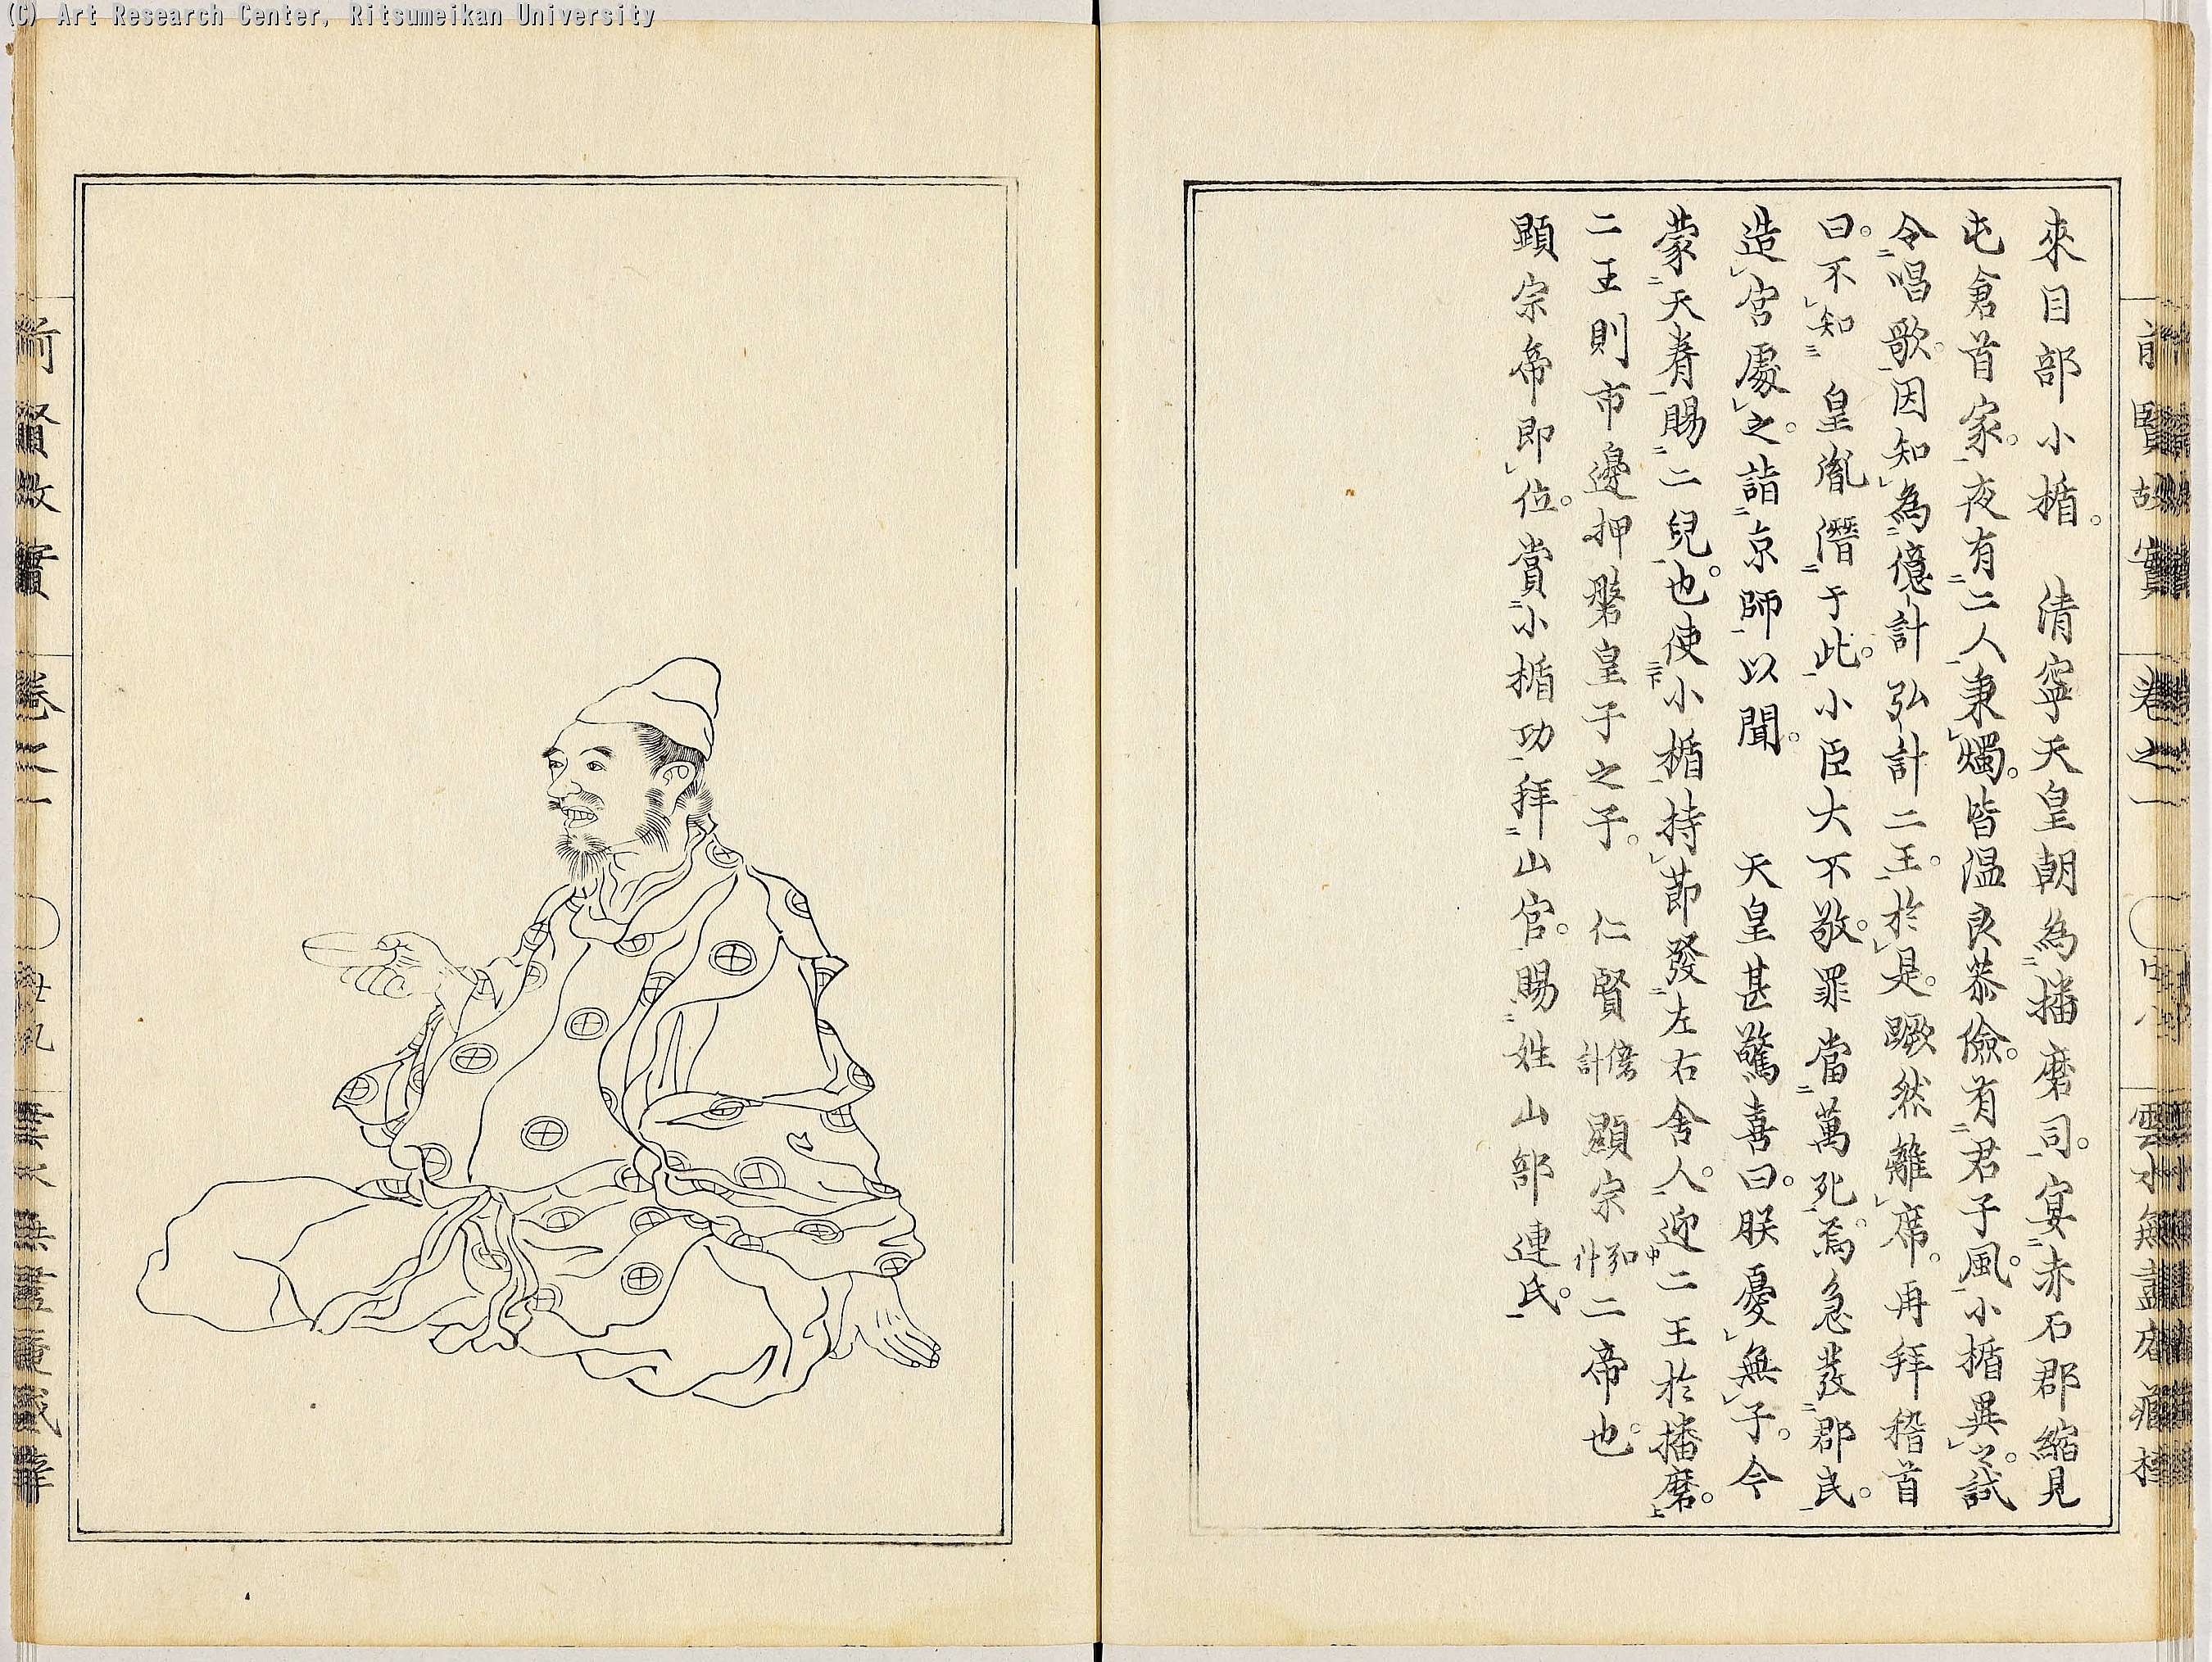 (C) Art Research Center, Ritsumeikan University
來目部小楯。 清寧天皇朝為播磨司。宴赤石郡縮見
屯倉首家。夜有二人秉燭。皆温良恭儉。有君子風。小楯異之。試
令唱歌。因知為億計弘計二王。於是。蹶然離席。再拜稽首
曰。不知 皇胤潛于此。小臣大不敬。罪當萬死焉。急發郡民。
造宮處之。詣京師以聞。 天皇甚驚喜曰。朕憂無子。今
蒙天眷賜二兒也。使小楯持節發左右舍人。迎二王於播磨。
二王則市邊押磐皇子之子。 仁賢億計顯宗弘計二帝也。
顕宗帝即位。賞小楯功拜山官。賜姓山部連氏。
前賢故實 卷之一
雲水無盡庵藏
前賢故實 卷之一